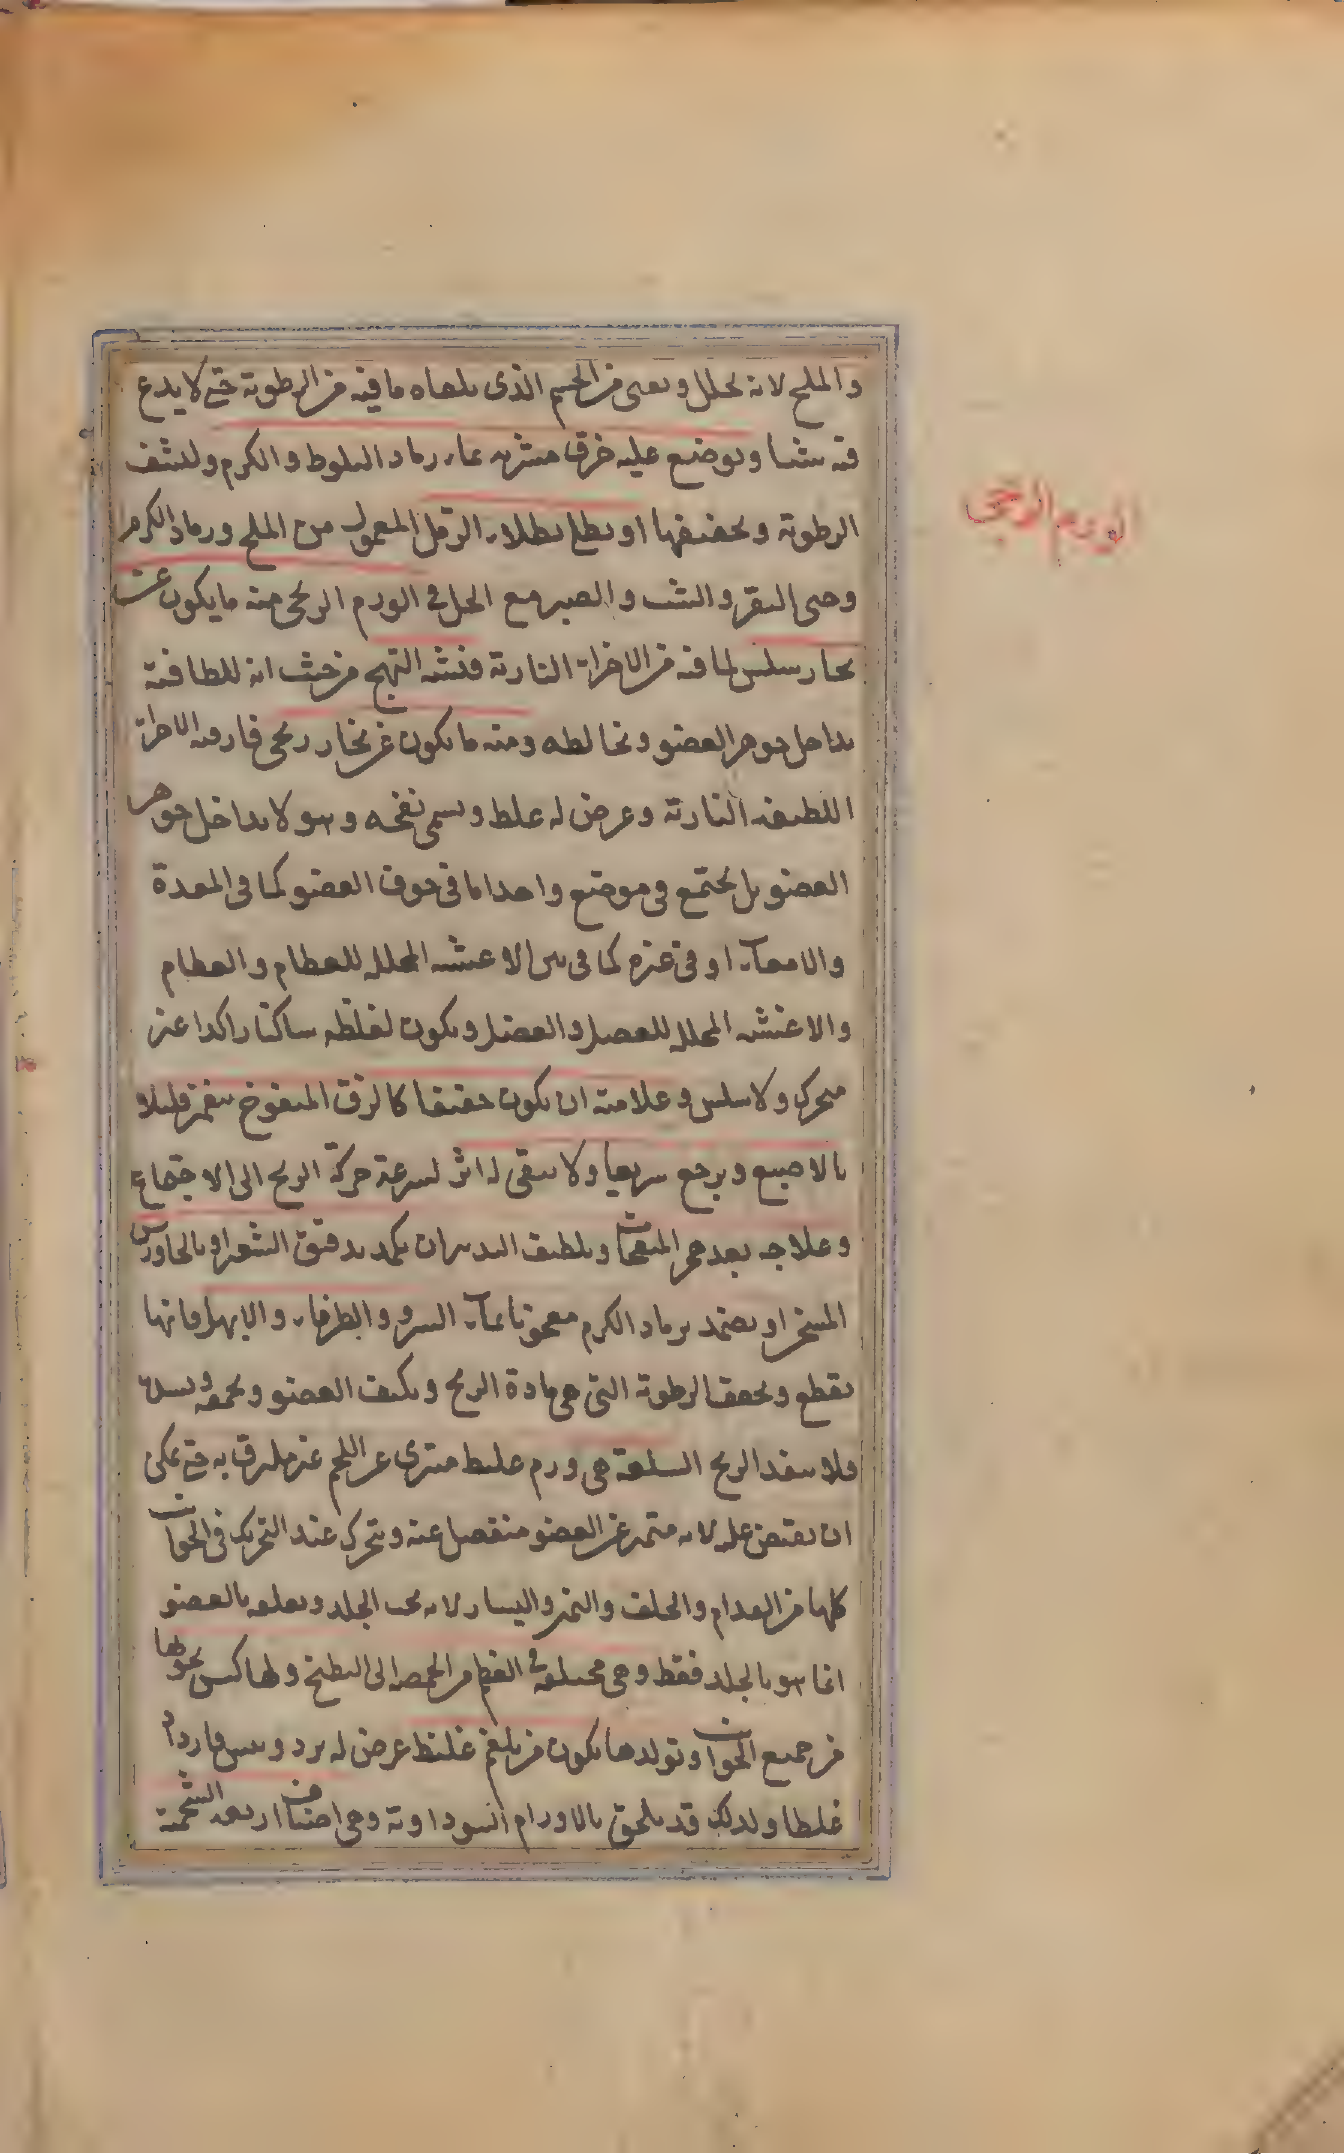 والملح لانه يحلل ويفنى من الجسم الذى يلقاه ما فيه من الرطوبة حتى لا يدع
فيه شيئا ويوضع عليه خرق مشربه بماء رماد البلوط والكرم ولنشف
الرطوبة وتجفيفها او يطلى بطلاء الترهل المعمول من الملح ورماد الكرم
وخثى البقر والشب والصبر مع الخل فى الورم الريحى منه ما يكون عن
بخار سلس لما فيه من الاجزاء النارية فيشبه التهيج من حيث انه للطافته
يداخل جوهر العضو ويخالطه ومنه ما يكون عن بخار ريحى فارقته الاجزاء
اللطيفه النارية وعرض له غلظ ويسمى نفخه وهو لا يداخل جوهر
العضو بل يجتمع فى موضع واحد اما فى جوف العضو كما فى المعدة
والامعاء او فى غيره كما فى بين الاغشيه المجلله للعظام والعظام
والاغشيه المجلله للعضل والعضل ويكون لغلظه ساكنا راكدا غير
متحرك ولا سلس وعلامته ان يكون خفيفا كالزق المنفوخ ينغمز قليلا
بالاصبع ويرجع سريعا ولا يبقى له اثر لسرعة حركة الريح الى الاجتماع
وعلاجه بعد هجر المنفخات وتلطيف التدبير ان يكمد بدقيق الشعير او بالجاورس
المسخن او يضمد برماد الكرم معجونا بماء السرو والطرفاء والابهل فانها
تقطع وتجفف الرطوبة التى هى مادة الريح وتكثف العضو وتجمعه وتسده
فلا ينفذ الريح السلعة هى ورم غليظ متبرى عن اللحم غير ملتزق به حتى يمكن
ان يقبض عليه لانه متميز عن العضو منفصل عنه ويتحرك عند التحريك فى الجوانب
كلها من القدام والخلف واليمين واليسار لانه تحت الجلد وتعلقه بالعضو
انما هو بالجلد فقط وهى مختلفة فى العظم من الحمصه الى البطيخ ولها كيس يحويها
من جميع الجوانب وتولدها يكون من بلغم غليظ عرض له برد ويبس فازداد
غلظا ولذلك قد يلحق بالاورام السوداوية وهى اصناف اربعه الشحمية
الورم الريحى